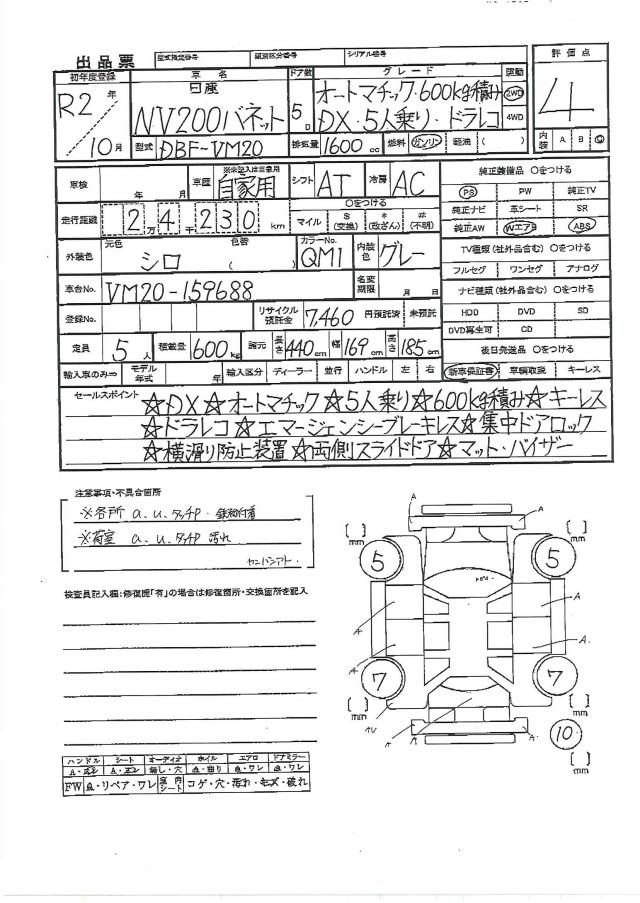 出品票 型式指定番号 類別区分番号 シリアル番号
初年度登録 車名 ドア数 グレード 駆動 評価点
R2年 日産 オートマチック・600kg積み 2WD 4
10月 NV200バネット 5D DX・5人乗り・ドラレコ 4WD
型式 DBF-VM20 排気量 1600cc 燃料 ガソリン・軽油( ) 内装 A B C
車検 年 月 車歴 ※未記入は自家用 自家用 シフト AT 冷房 AC 純正装備品 〇をつける
PS PW 純正TV
走行距離 2万4千230km 〇をつける マイル $(交換) *(改ざん) #(不明) 純正ナビ 革シート SR
純正AW WエアB ABS
外装色 元色 シロ 色替 ( ) カラーNo. QM1 内装色 グレー TV種類(社外品含む)〇をつける
フルセグ ワンセグ アナログ
車台No. VM20-159688 名変期限 月 日 ナビ種類(社外品含む)〇をつける
登録No. リサイクル預託金 7,460 円預託済 未預託 HDD DVD SD
DVD再生可 CD
定員 5人 積載量 600kg 諸元 長さ440cm 幅169cm 高さ185cm 後日発送品 〇をつける
輸入車のみ⇒ モデル年式 年 輸入区分 ディーラー・並行 ハンドル 左・右 新車保証書 車輌取説 キーレス
セールスポイント ☆DX☆オートマチック☆5人乗り☆600kg積み☆キーレス
☆ドラレコ☆エマージェンシーブレーキレス☆集中ドアロック
☆横滑り防止装置☆両側スライドドア☆マット・バイザー
注意事項・不具合箇所
※各所 a.u.タッチP・鉄粉付着
※荷室 a.u.タッチP 汚れ
検査員記入欄:修復歴「有」の場合は修復箇所・交換箇所を記入
[ ]mm 5 A A 5 [ ]mm
A A
A A
[ ]mm 7 7 [ ]mm
A A
10 [ ]mm
ハンドル シート オーディオ ホイル エアロ ドアミラー
A・ズレ A・ズレ 無し・穴 a・曲り a・ワレ a・ワレ
FW a・リペア・ワレ 車内シート コゲ・穴・汚れ・キズ・破れ